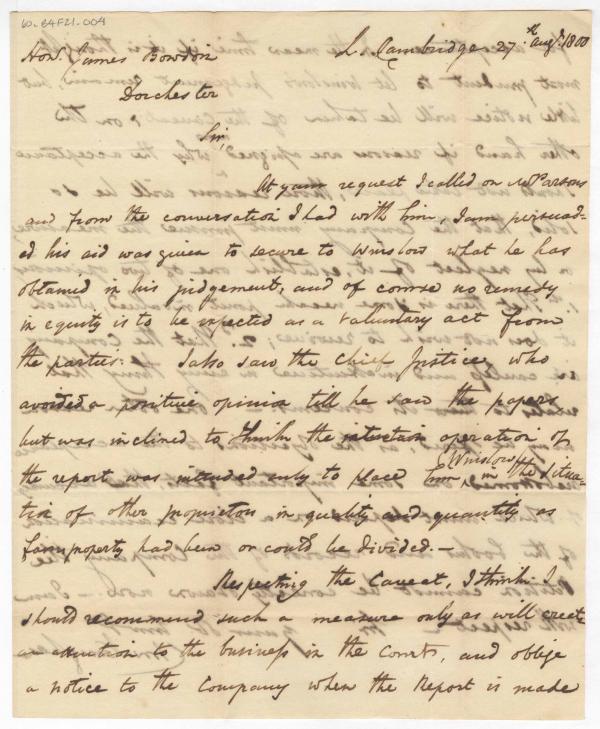 60.B4F21.004
L. Cambridge 27.th augt. 1800
Hon. James Bowdoin
Dorchester
Sir,
At your request I called on Mr Parsons
and from the conversation I had with him, I am persuad-
ed his aid was given to secure to Winslow what he has
obtained in his judgement, and of course no remedy
in equity is to be expected as a voluntary act from
the parties. I also saw the Chief Justice who
avoided a positive opinion till he saw the papers
but was inclined to think the operation of
the report was intended only to place him (Winslow) in the situa-
tion of other proprietors in quality and quantity as
property had been or could be divided. -
Respecting the Caveat, I think I
should recommend such a measure only as will create
an attention to the business in the Courts, and oblige
a notice to the Company when the Report is made